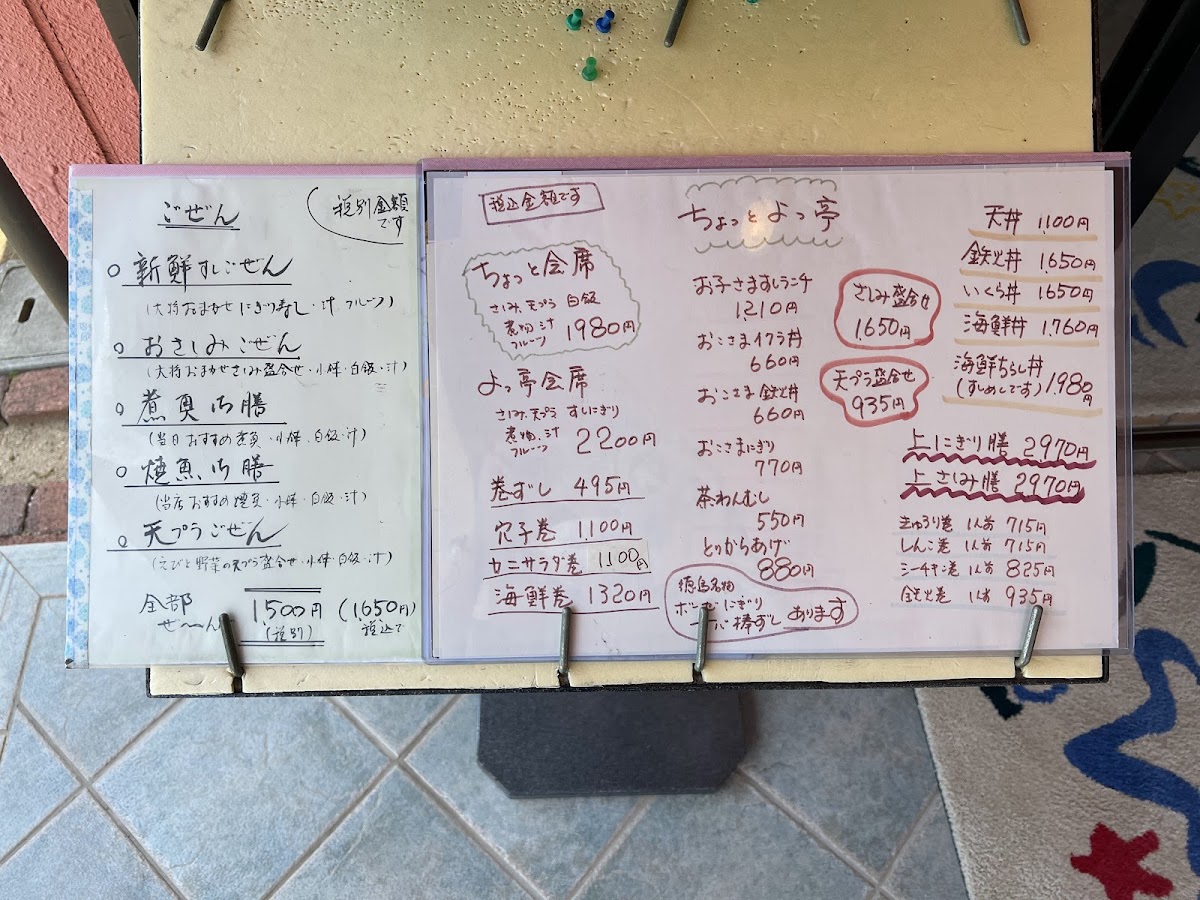 ごぜん
税別金額
です
○ 新鮮すしごぜん
(大将おまかせにぎり寿し・汁 フルーツ)
○ おさしみごぜん
(大将おまかせさしみ盛合せ・小鉢・白飯・汁)
○ 煮魚御膳
(当日おすすめ煮魚・小鉢・白飯・汁)
○ 焼魚御膳
(当店おすすめ焼魚・小鉢・白飯・汁)
○ 天プラごぜん
(えびと野菜の天プラ盛合せ・小鉢・白飯・汁)
全部
ぜ〜んぶ
1,500円
(税別)
(1,650円)
税込で
税込金額です
ちょっと会席
さしみ、天プラ 白飯
煮物 汁
フルーツ
1980円
よっ亭会席
さしみ、天プラ すしにぎり
煮物、汁
フルーツ
2200円
巻ずし 495円
穴子巻 1,100円
カニサラダ巻 1100円
海鮮巻 1320円
ちょっとよっ亭
お子さますしランチ
1210円
おこさまイクラ丼
660円
おこさま鉄火丼
660円
おこさまにぎり
770円
茶わんむし
550円
とりからあげ
880円
徳島名物
にぎり
棒ずし あります
さしみ盛合せ
1,650円
天プラ盛合せ
935円
天丼 1,100円
鉄火丼 1,650円
いくら丼 1650円
海鮮丼 1,760円
海鮮ちらし丼
(すしめしです) 1,980円
上にぎり膳 2970円
上さしみ膳 2970円
きゅうり巻 1人前 715円
しんこ巻 1人前 715円
シーチキン巻 1人前 825円
鉄火巻 1人前 935円